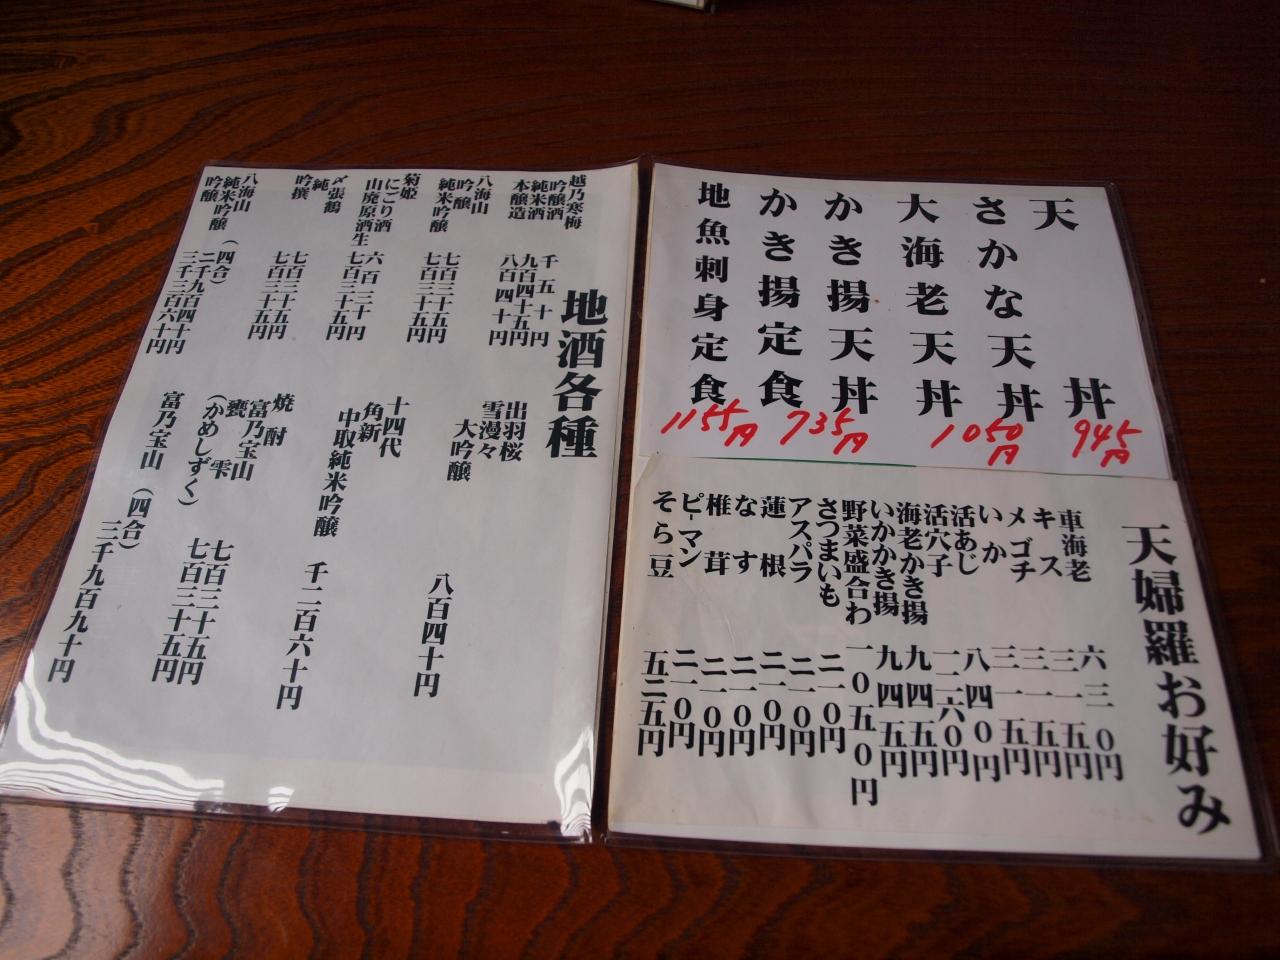 天丼 945円
さかな天丼
大海老天丼 1050円
かき揚天丼
かき揚定食 735円
地魚刺身定食 1155円
天婦羅お好み
車海老 六三〇円
キス 三一五円
メゴチ 三一五円
いか 三一五円
活あじ 八四〇円
活穴子 一二六〇円
海老かき揚 九四五円
いかかき揚 九四五円
野菜盛合わ 一〇五〇円
さつまいも 二一〇円
アスパラ 二一〇円
蓮根 二一〇円
なす 二一〇円
椎茸 二一〇円
ピーマン 二一〇円
そら豆 五二五円
地酒各種
越乃寒梅
吟醸酒 千五十円
純米酒 九百四十五円
本醸造 八百四十円
八海山
吟醸 七百三十五円
純米吟醸 七百三十五円
菊姫
にごり酒 六百三十円
山廃原酒生 七百三十五円
〆張鶴
純 七百三十五円
吟撰 七百三十五円
八海山 (四合)
純米吟醸 二千九百四十円
吟醸 三千三百六十円
出羽桜
雪漫々
大吟醸 八百四十円
十四代
角新
中取純米吟醸 千二百六十円
焼酎
富乃宝山 七百三十五円
甕雫
(かめしずく) 七百三十五円
富乃宝山 (四合)
三千九百九十円